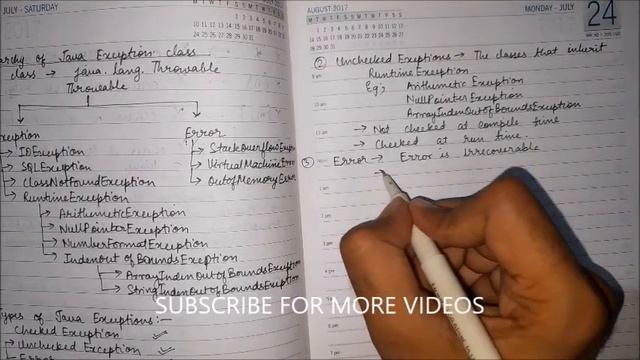 JULY - SATURDAY
archy of Java Exception class
class → java.lang.Throwable
Throwable
xception
→ IOException
→ SQLException
→ ClassNotFoundException
→ RuntimeException
→ ArithmeticException
→ NullPointerException
→ NumberFormatException
→ Index out of BoundsException
→ ArrayIndexOutofBoundsException
→ StringIndexOutofBoundsException
Error
→ StackOverflowE
→ VirtualMachineError
→ OutofMemoryError
ypes of Java Exceptions:-
Checked Exception
Unchecked Exception
Error
AUGUST 2017
MONDAY - JULY
24
② Unchecked Exceptions → The classes that inherit
RuntimeException
Eg', Arithmetic Exception
NullPointerException
ArrayIndexOutofBoundsException
→ Not checked at compile time
→ Checked at run time.
③ Error → Error is Irrecoverable
→
SUBSCRIBE FOR MORE VIDEOS